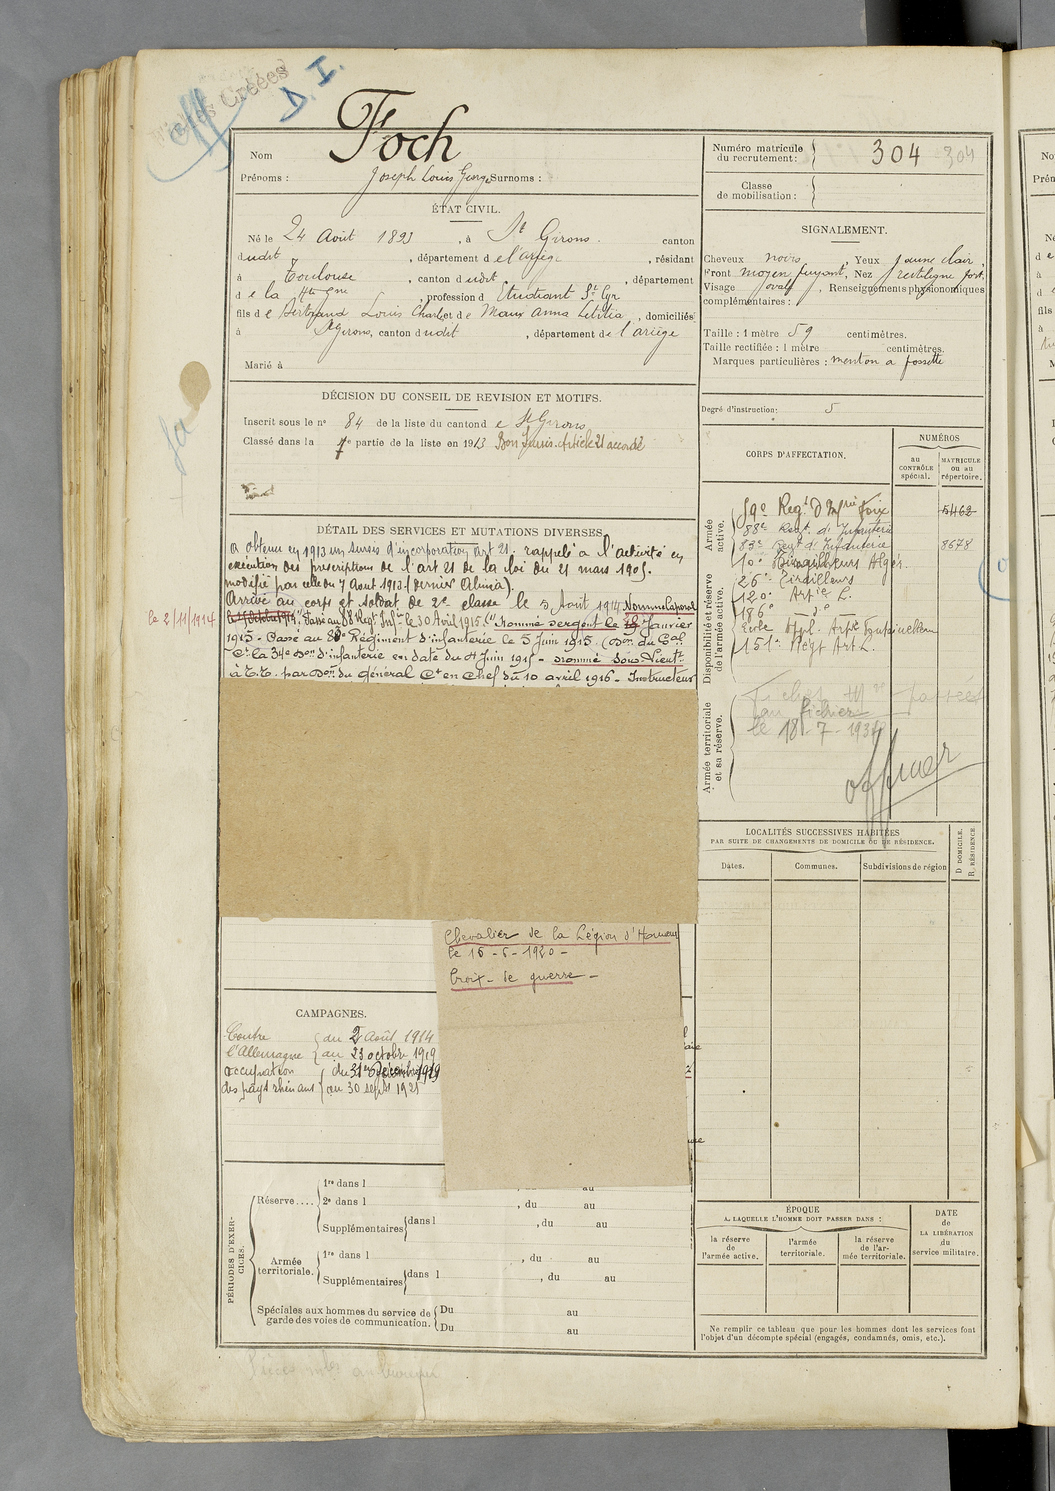 D. I.
Nom Foch
Prénoms : Joseph Louis George Surnoms :
ÉTAT CIVIL.
Né le 24 Août 1893, à St Girons. canton
dudit, département de l'ariège, résidant
à Toulouse, canton dudit, département
de la Hte Gne, profession d'Etudiant St Cyr
fils de Bertrand Louis Charles et de Maux Anna Letitia, domiciliés
à St Girons, canton dudit, département de l'ariège
Marié à
DÉCISION DU CONSEIL DE REVISION ET MOTIFS.
Inscrit sous le n° 84 de la liste du canton de St Girons
Classé dans la 1re partie de la liste en 1913 Bon Sursis. Article 21 accordé
DÉTAIL DES SERVICES ET MUTATIONS DIVERSES.
a obtenu en 1913 un sursis d'incorporation art 21. rappelé a l'activité en
exécution des prescriptions de l'art 21 de la loi du 21 mars 1905.
modifié par celle du 7 Aout 1913 (dernier Alinéa).
Arrivé au corps et soldat de 2e classe le 3 Août 1914. Nommé caporal
le 2/11/1914
Passé au 88 Regt Infie le 30 Avril 1915. Nommé sergent le Janvier
1915. Passé au 83e Régiment d'infanterie le 5 Juin 1915. (Don du Gal
Ct la 34e Don d'infanterie en date du 4 Juin 1915 - nommé Sous-Lieutt
à T.T. par Don du Général Ct en Chef du 10 avril 1916 - Instructeur
Chevalier de la Légion d'Honneur
le 16 - 6 - 1920 -
Croix - de guerre -
CAMPAGNES.
Contre du 2 Août 1914
l'Allemagne au 23 octobre 1919
occupation du décembre 1919
des pays rhénans au 30 sept 1921
PÉRIODES D'EXERCICES.
Réserve....
1re dans l , du au
2e dans l , du au
Supplémentaires dans l , du au
Armée territoriale.
1re dans l , du au
Supplémentaires dans l , du au
Spéciales aux hommes du service de garde des voies de communication.
Du au
Du au
Numéro matricule du recrutement : 304 304
Classe de mobilisation :
SIGNALEMENT.
Cheveux noirs, Yeux jaune clair,
Front moyen fuyant, Nez rectiligne fort,
Visage ovale, Renseignements physionomiques
complémentaires :
Taille : 1 mètre 59 centimètres.
Taille rectifiée : 1 mètre centimètres.
Marques particulières : menton a fossette
Degré d'instruction : 5
CORPS D'AFFECTATION.
NUMÉROS
au CONTRÔLE spécial.
MATRICULE ou au répertoire.
Armée active.
59e Regt d'Infrie Foix 5462
88e Regt d'Infanterie
83e Regt d'Infanterie 8678
Disponibilité et réserve de l'armée active.
10e Tirailleurs Alger.
26e Tirailleurs
120e Artie L.
186e do
Ecole Appl. Artie Fontainebleau
151e Regt Art L.
Armée territoriale et sa réserve.
passées
au fichier
le 18-7-193
officier
LOCALITÉS SUCCESSIVES HABITÉES
PAR SUITE DE CHANGEMENTS DE DOMICILE OU DE RÉSIDENCE.
Dates. Communes. Subdivisions de région
D. DOMICILE.
R. RÉSIDENCE
ÉPOQUE
A LAQUELLE L'HOMME DOIT PASSER DANS :
la réserve de l'armée active.
l'armée territoriale.
la réserve de l'armée territoriale.
DATE
de
LA LIBÉRATION
du
service militaire.
Ne remplir ce tableau que pour les hommes dont les services font
l'objet d'un décompte spécial (engagés, condamnés, omis, etc.).